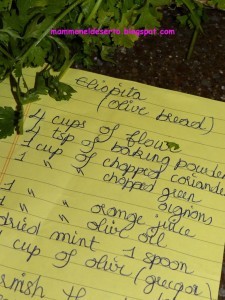 mammaneldeserto.blogspot.com
eliopita
(olive bread)
4 cups of flour
4 tsp of baking powder
1 cup of chopped coriander
1 " " chopped green
oignons
1 " " orange juice
1 " " olive oil
dried mint 1 spoon
cup of olive (greeger)